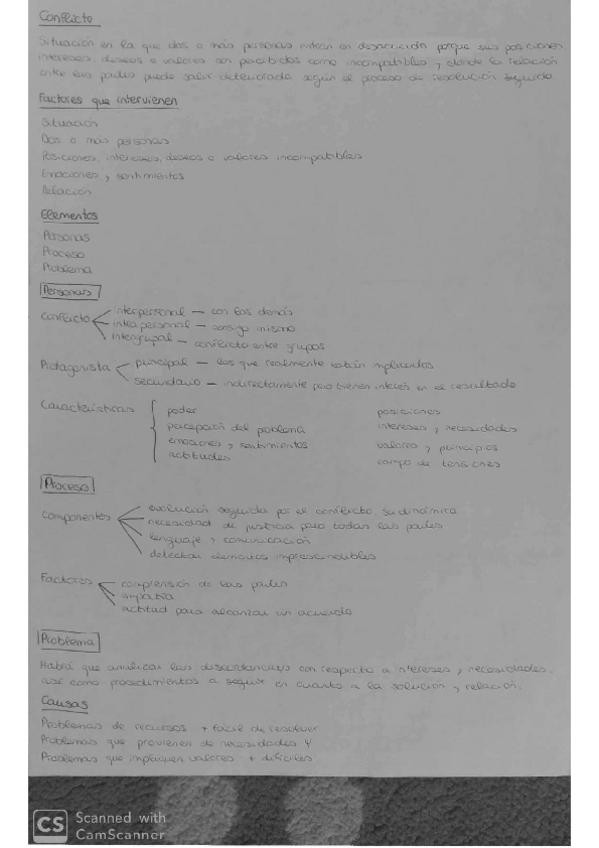 Conflicto
Situación en la que dos o más personas entran en desacuerdo porque sus posiciones,
intereses, deseos o valores son percibidos como incompatibles y donde la relación
entre las partes puede salir deteriorada según el proceso de resolución seguido.
Factores que intervienen
Situación
Dos o más personas
Posiciones, intereses, deseos o valores incompatibles
Emociones y sentimientos
Relación
Elementos
Personas
Proceso
Problema
Personas
Conflicto
interpersonal — con los demás
intrapersonal — consigo mismo
intergrupal — conflicto entre grupos
Protagonista
principal — los que realmente están implicados
secundario — indirectamente pero tienen interés en el resultado
Características
poder
percepción del problema
emociones y sentimientos
actitudes
posiciones
intereses y necesidades
valores y principios
campo de tensiones
Proceso
Componentes
evolución seguida por el conflicto, su dinámica
necesidad de justicia para todas las partes
lenguaje y comunicación
detectar elementos imprescindibles
Factores
comprensión de las partes
empatía
actitud para alcanzar un acuerdo
Problema
Habrá que analizar las discordancias con respecto a intereses y necesidades,
así como procedimientos a seguir en cuanto a la solución y relación.
Causas
Problemas de recursos + fácil de resolver
Problemas que provienen de necesidades
Problemas que impliquen valores + difíciles
CS Scanned with
CamScanner